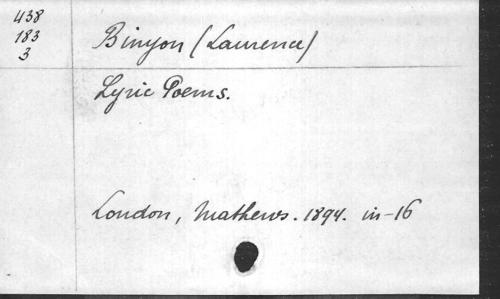 438
183
3
Binyon (Laurence)
Lyric Poems.
London, Mathews. 1894. in-16